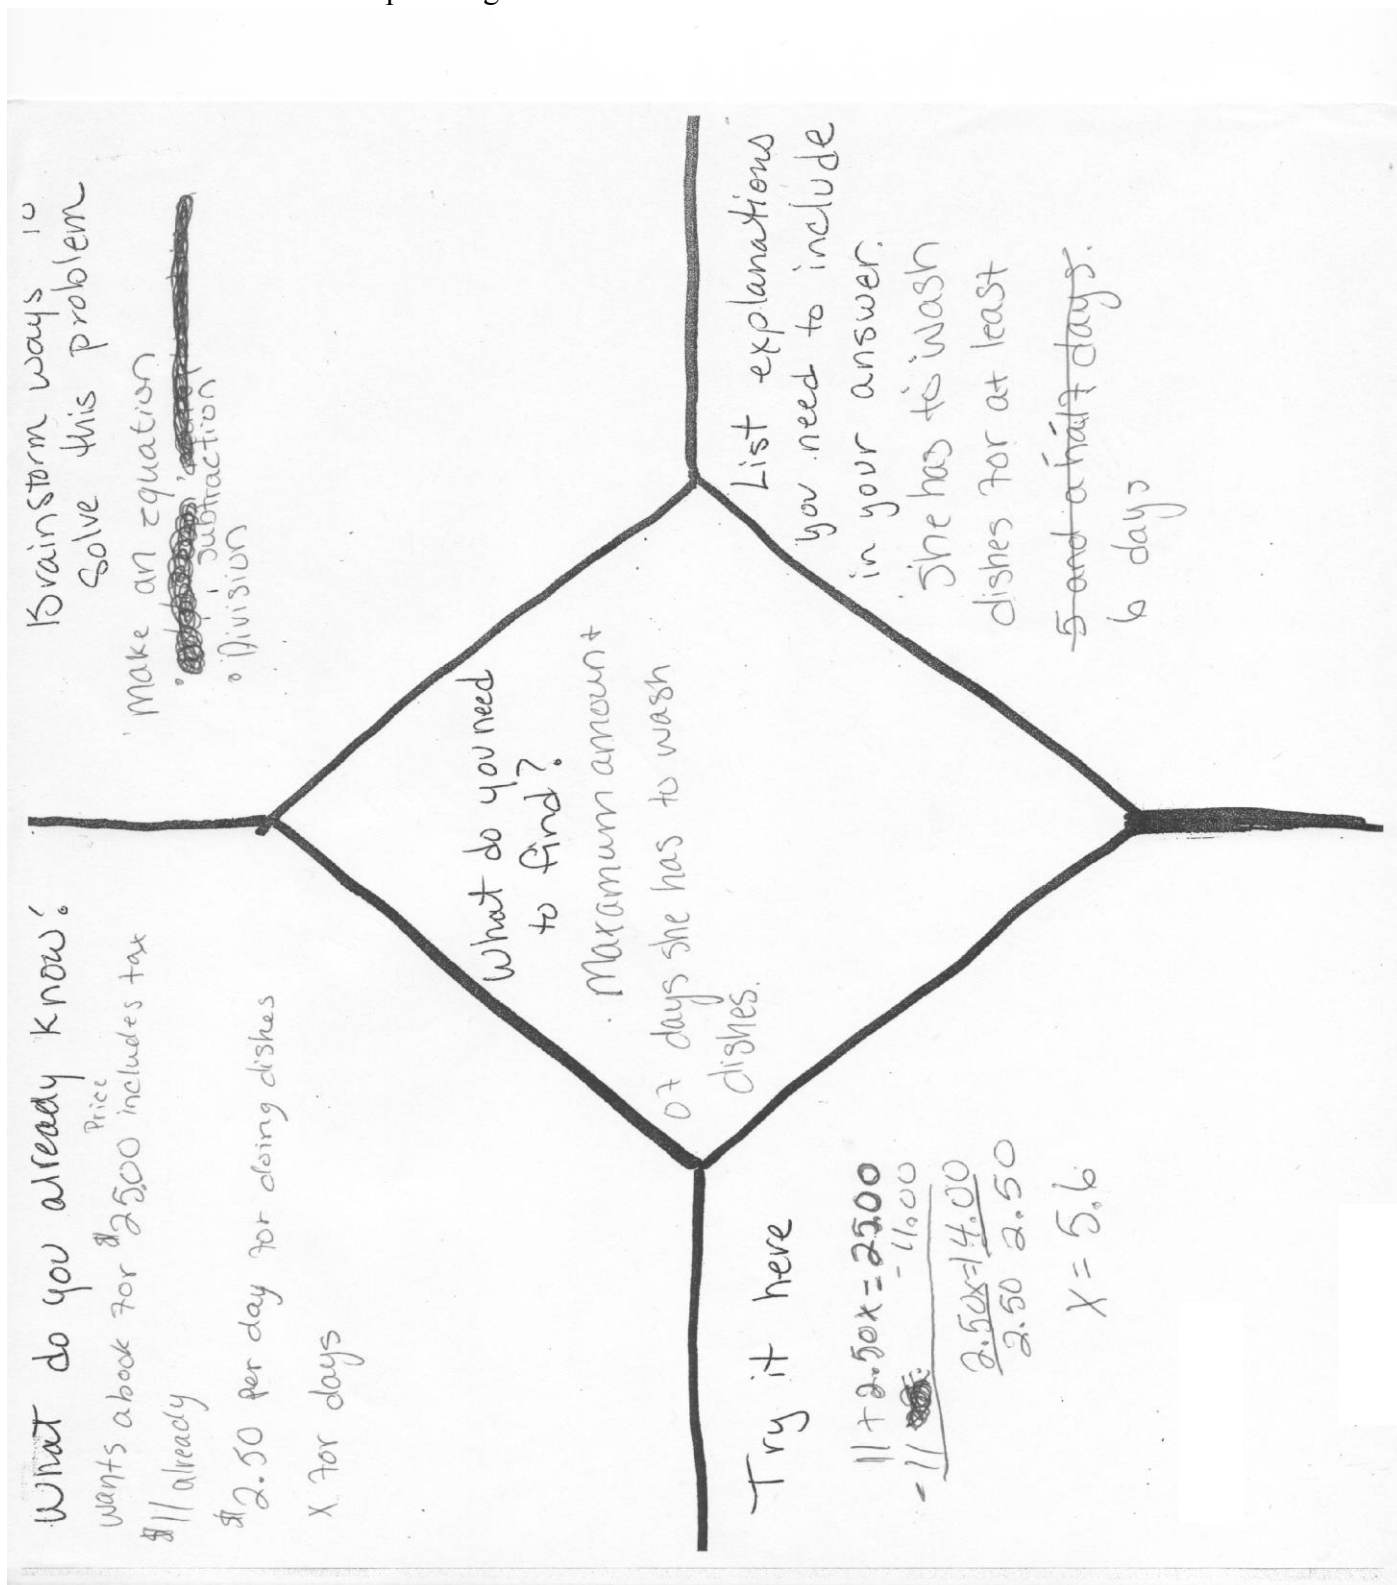 What do you already know?
wants a book for $25.00 Price includes tax
$11 already
$2.50 per day for doing dishes
X for days
Brainstorm ways to
solve this problem
make an equation
subtraction
Division
What do you need
to find?
Maxamum amount
of days she has to wash
dishes.
Try it here
11 + 2.50x = 25.00
-11 -11.00
2.50x = 14.00
2.50 2.50
X = 5.6
List explanations
you need to include
in your answer.
She has to wash
dishes for at least
5 and a half days.
6 days